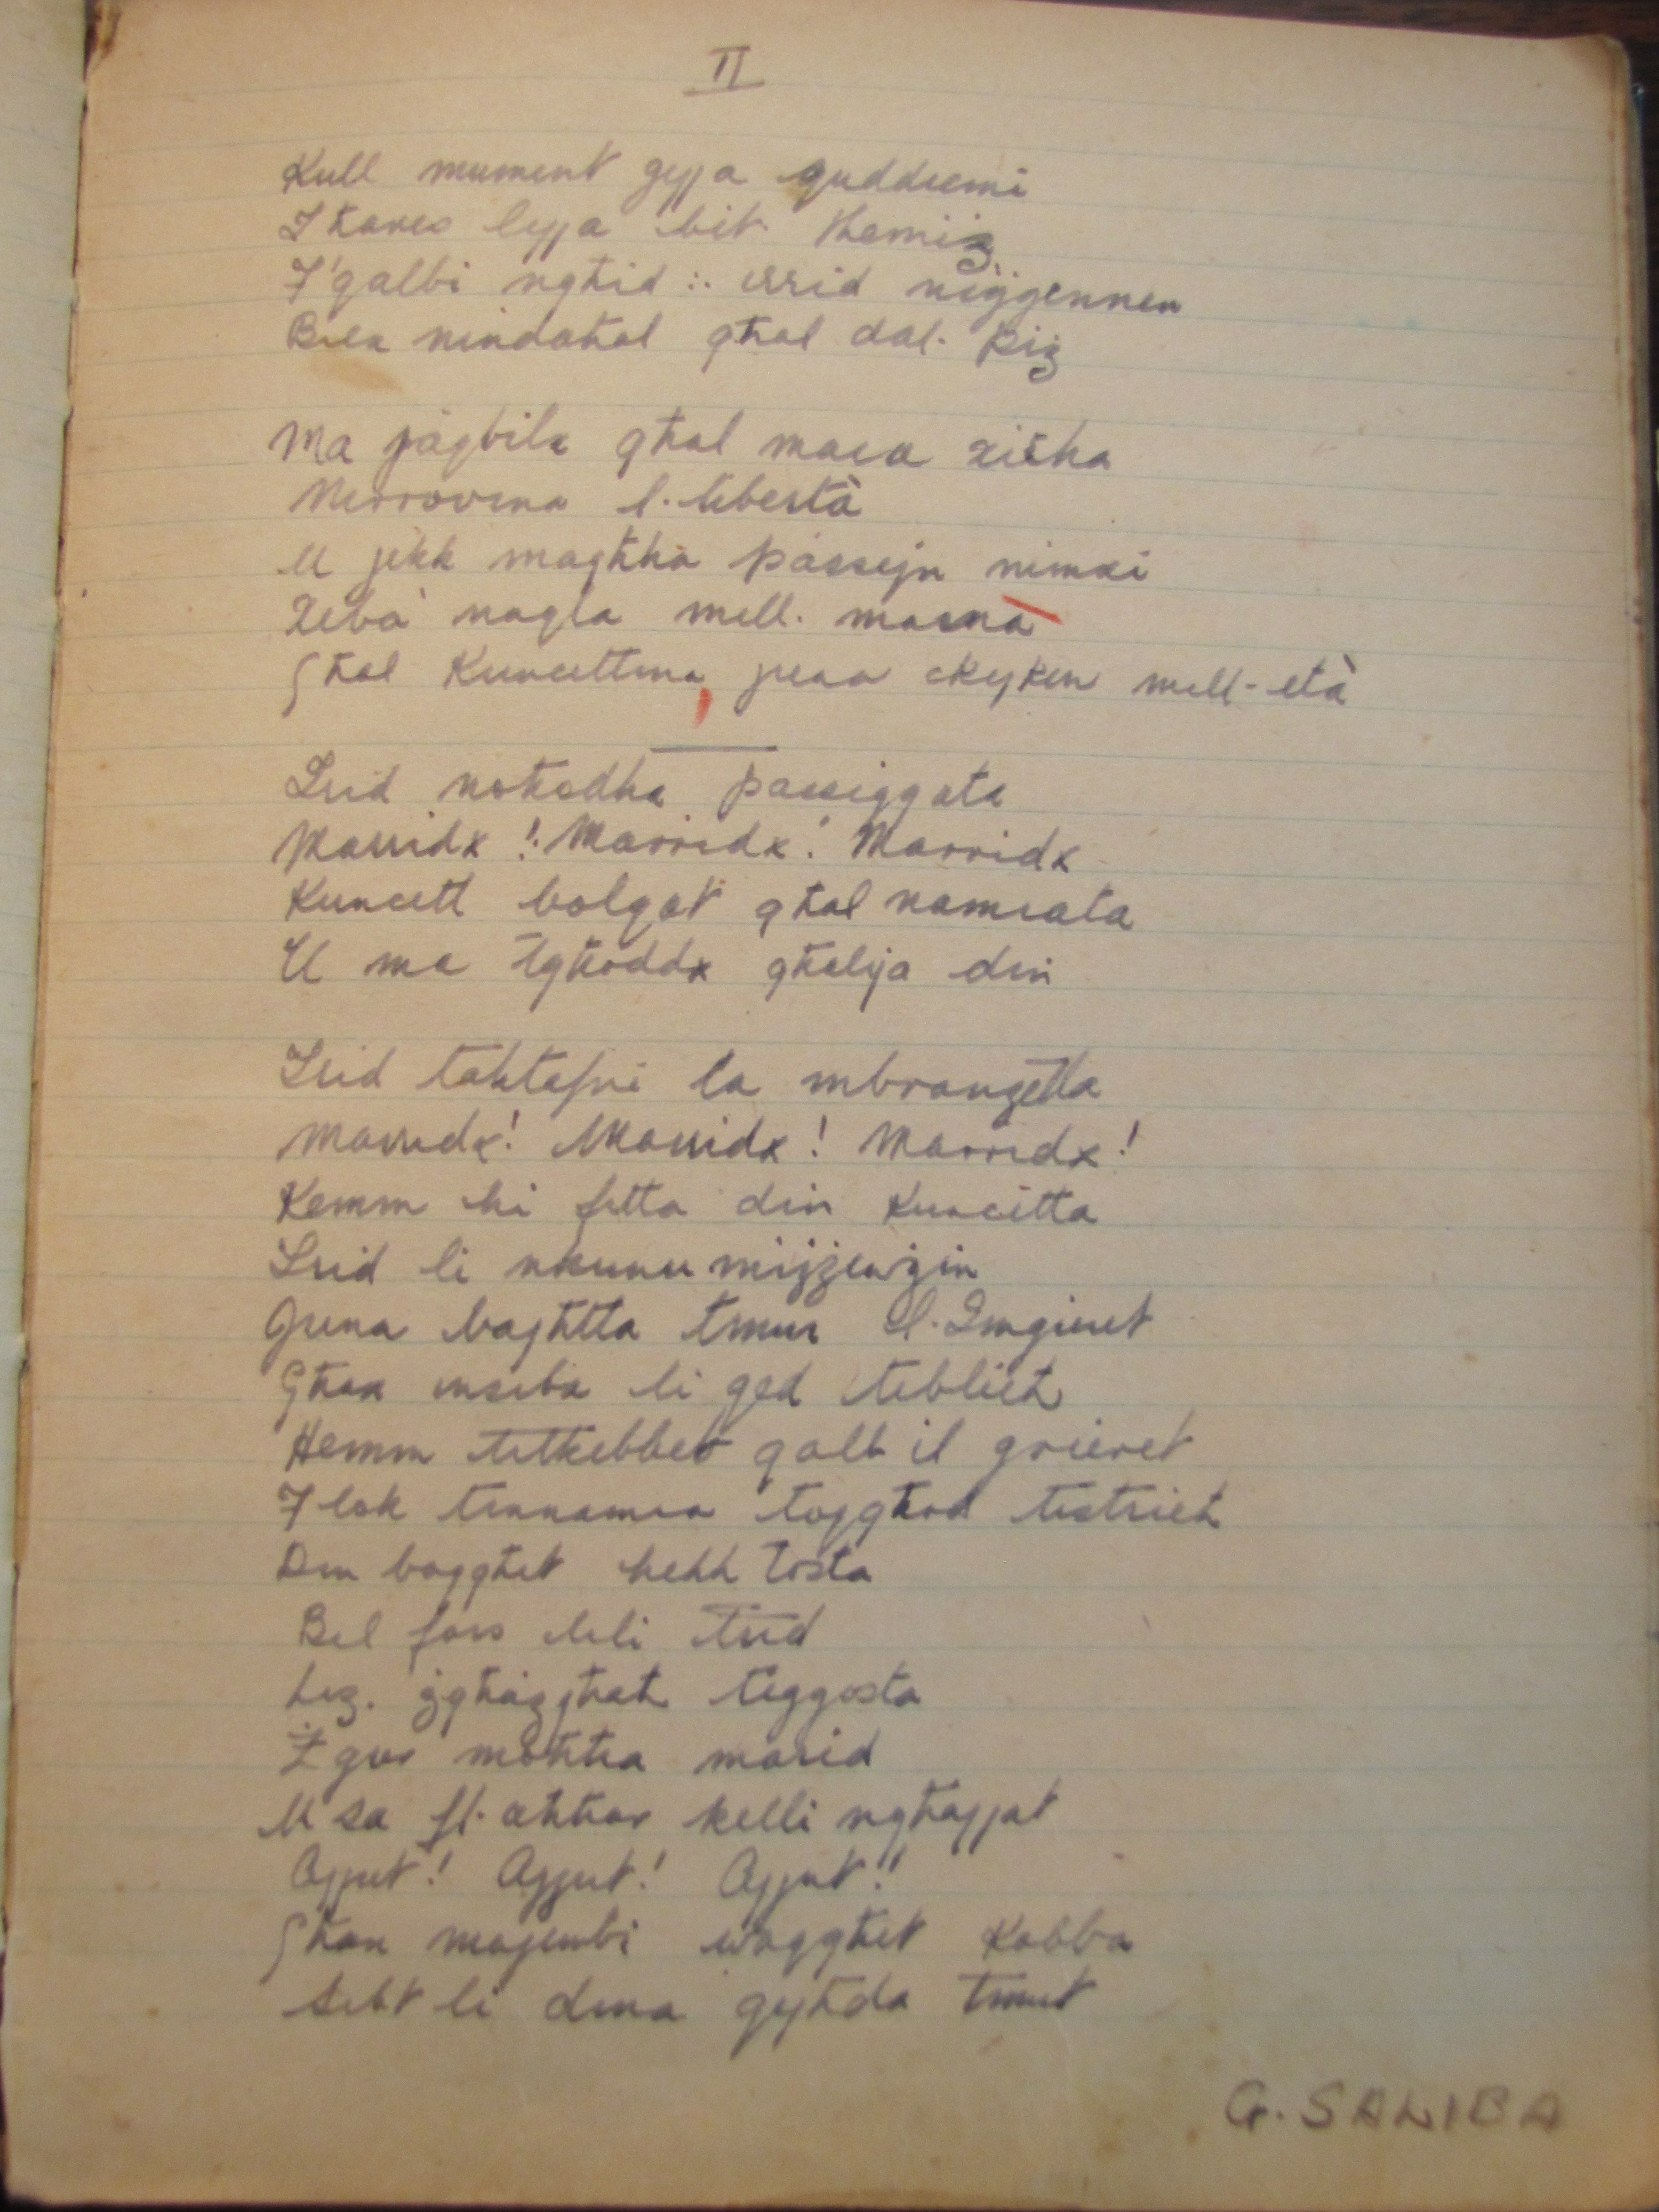 II
Kull mument gejja quddiemi
Tħares lejja bit. Kemiz
F'qalbi ngħid :. irrid niġġennen
Biex nindaħal għal dal. Biz
Ma jaqbilx għal mara xiħa
Nirrovina l. libertà
U jekk magħha passejn nimxi
Xebà naqla mill. marna
Għal Kuncettina jiena ckejken mill-età
Irid noħodha passiggata
Marridx !. Marridx! Marridx
Kuncett bolqot għal namrata
U ma tgħoddx għalija din
Irid taħtafni la mbranzetta
Marridx! Marridx! Marridx!
Kemm hi fetta din Kuncetta
Irid li nkunu miżżewġin
Jiena bagħtta tmur l. Imġieret
Għax insibx li qed tiblieħ
Hemm titkebbes qalb il grieret
F lok tinnamra toqgħod tistrieħ
Din baqgħet hekk tosta
Bil fors lili trid
Liż. żgħażgħaħ tiggosta
Żgur moħħha marid
U sa fl. aħħar kelli ngħajjat
Ajjut! Ajjut! Ajjut!!
Għax maġembi waqgħet kobba
Sibt li dina qegħda tmut
G. SALIBA